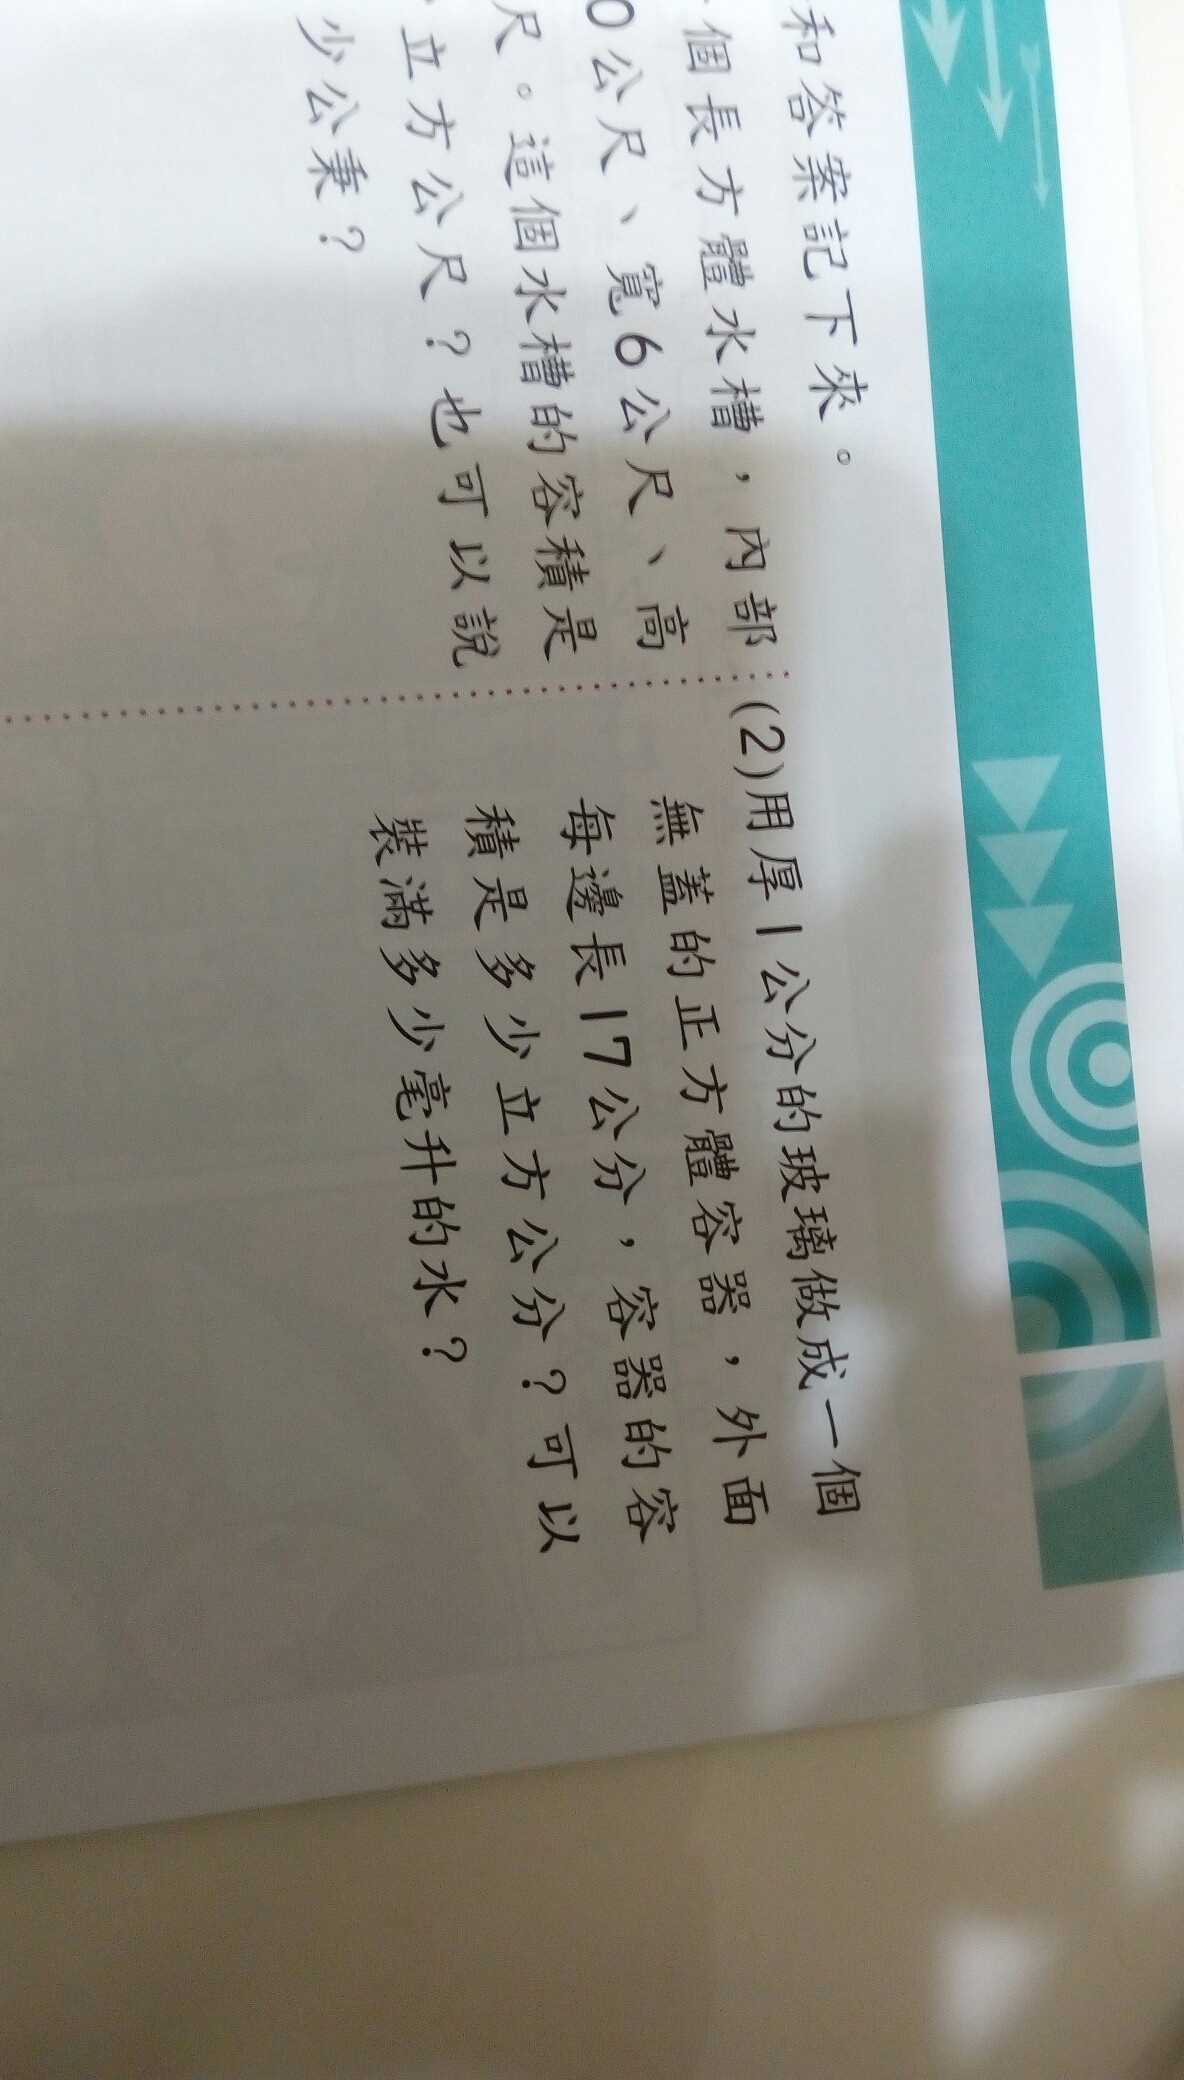 和答案記下來。
個長方體水槽，內部
0公尺、寬6公尺、高
尺。這個水槽的容積是
立方公尺？也可以說
少公秉？
(2)用厚1公分的玻璃做成一個
無蓋的正方體容器，外面
每邊長17公分，容器的容
積是多少立方公分？可以
裝滿多少毫升的水？